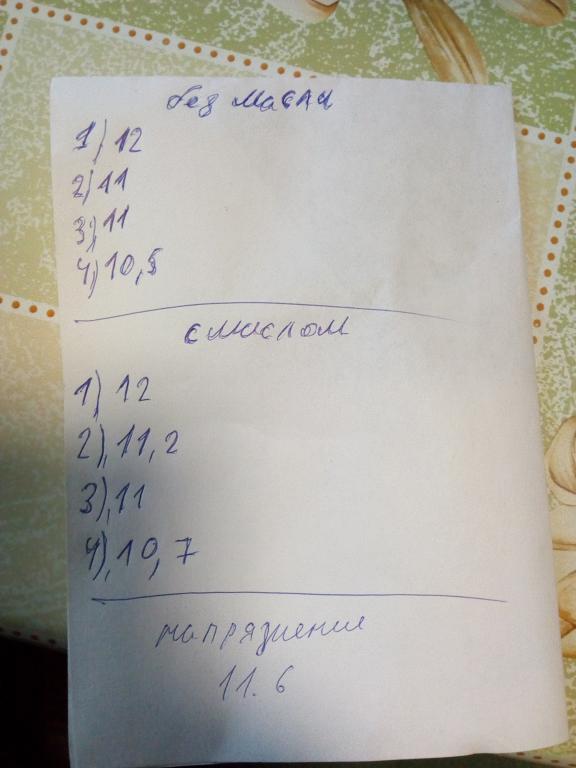 без масла
1) 12
2) 11
3) 11
4) 10,5
с маслом
1) 12
2) 11,2
3) 11
4) 10,7
напряжение
11.6